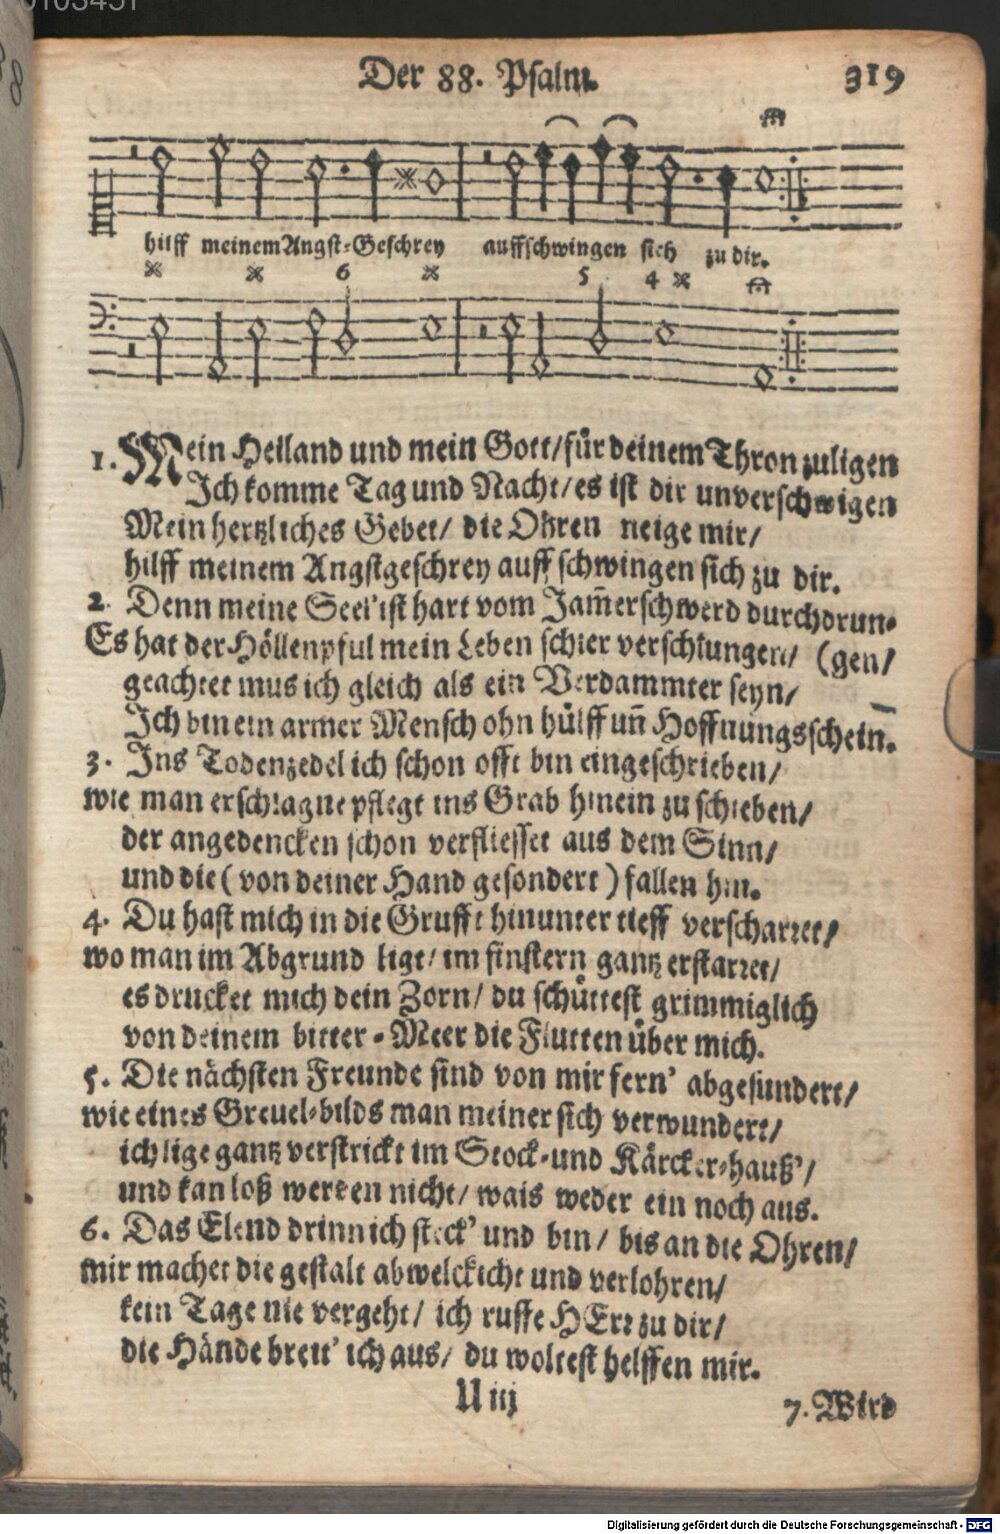 Der 88. Psalm.
319
hilff meinem Angst-Geschrey auffschwingen sich zu dir.
6 5 4
1. Mein Heiland und mein Gott/für deinem Thron zuligen
Ich komme Tag und Nacht/es ist dir unverschwigen
Mein hertzliches Gebet/ die Ohren neige mir/
hilff meinem Angstgeschrey auff schwingen sich zu dir.
2. Denn meine Seel' ist hart vom Jam̄erschwerd durchdrun-
Es hat der Höllenpful mein Leben schier verschlungen/ (gen/
geachtet mus ich gleich als ein Verdammter seyn/
Ich bin ein armer Mensch ohn hülff un̄ Hoffnungsschein.
3. Ins Todenzedel ich schon offt bin eingeschrieben/
wie man erschlagne pflegt ins Grab hinein zu schieben/
der angedencken schon verfliesset aus dem Sinn/
und die (von deiner Hand gesondert) fallen hin.
4. Du hast mich in die Grufft hinunter tieff verscharret/
wo man im Abgrund ligt/ im finstern gantz erstarret/
es drucket mich dein Zorn/ du schüttest grimmiglich
von deinem bitter-Meer die Flutten über mich.
5. Die nächsten Freunde sind von mir fern' abgesundert/
wie eines Greuel-bilds man meiner sich verwundert/
ich lige gantz verstrickt im Stock-und Kärcker-hauß'/
und kan loß werden nicht/ wais weder ein noch aus.
6. Das Elend drinn ich steck' und bin/ bis an die Ohren/
mir machet die gestalt abwelckicht und verlohren/
kein Tage nie vergeht/ ich ruffe HErr zu dir/
die Hände breit' ich aus/ du woltest helffen mir.
U iij
7. Wird
Digitalisierung gefördert durch die Deutsche Forschungsgemeinschaft - DFG